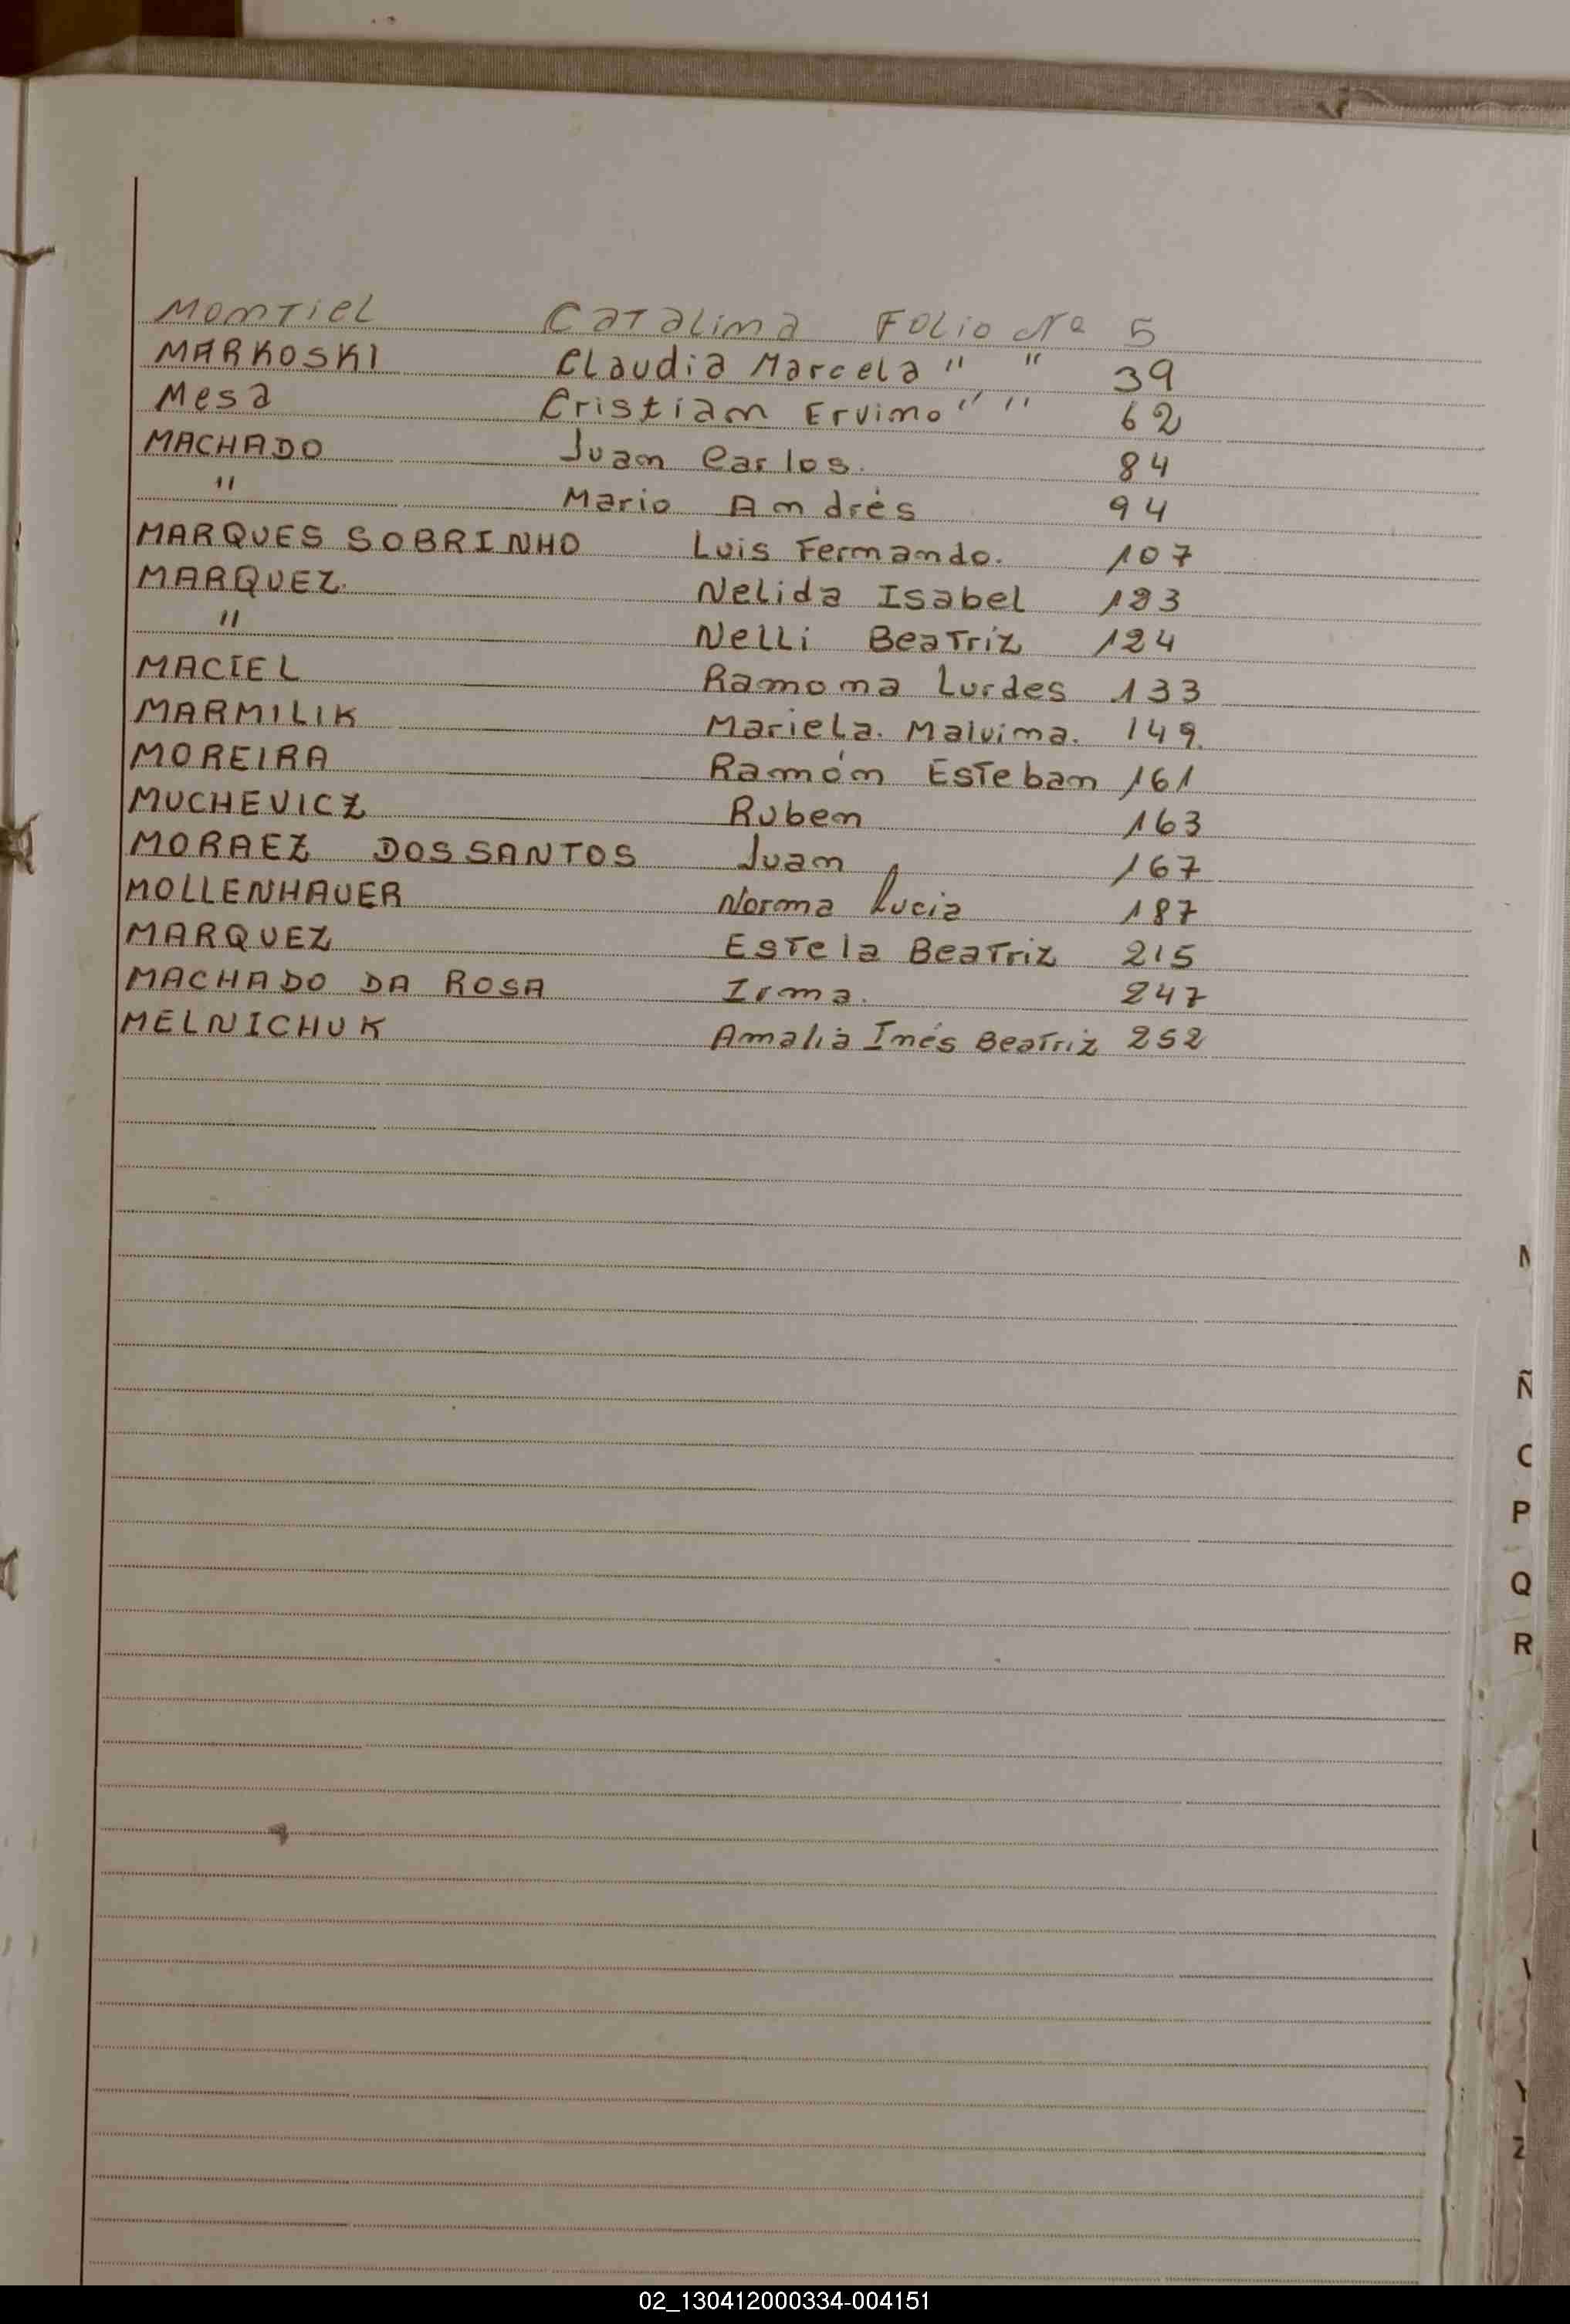 Montiel Catalina Folio Nº 5
MARKOSKI Claudia Marcela " " 39
Mesa Cristian Ervino " " 62
MACHADO Juan Carlos. 84
" Mario Andrés 94
MARQUES SOBRINHO Luis Fernando. 107
MARQUEZ Nelida Isabel 123
" Nelli Beatriz 124
MACIEL Ramona Lurdes 133
MARMILIK Mariela. Malvina. 149.
MOREIRA Ramón Esteban 161
MUCHEVICZ Ruben 163
MORAEZ DOS SANTOS Juan 167
MOLLENHAUER Norma Lucia 187
MARQUEZ Estela Beatriz 215
MACHADO DA ROSA Irma. 247
MELNICHUK Amalia Inés Beatriz 252
Ñ
P
Q
R
Z
02_130412000334-004151